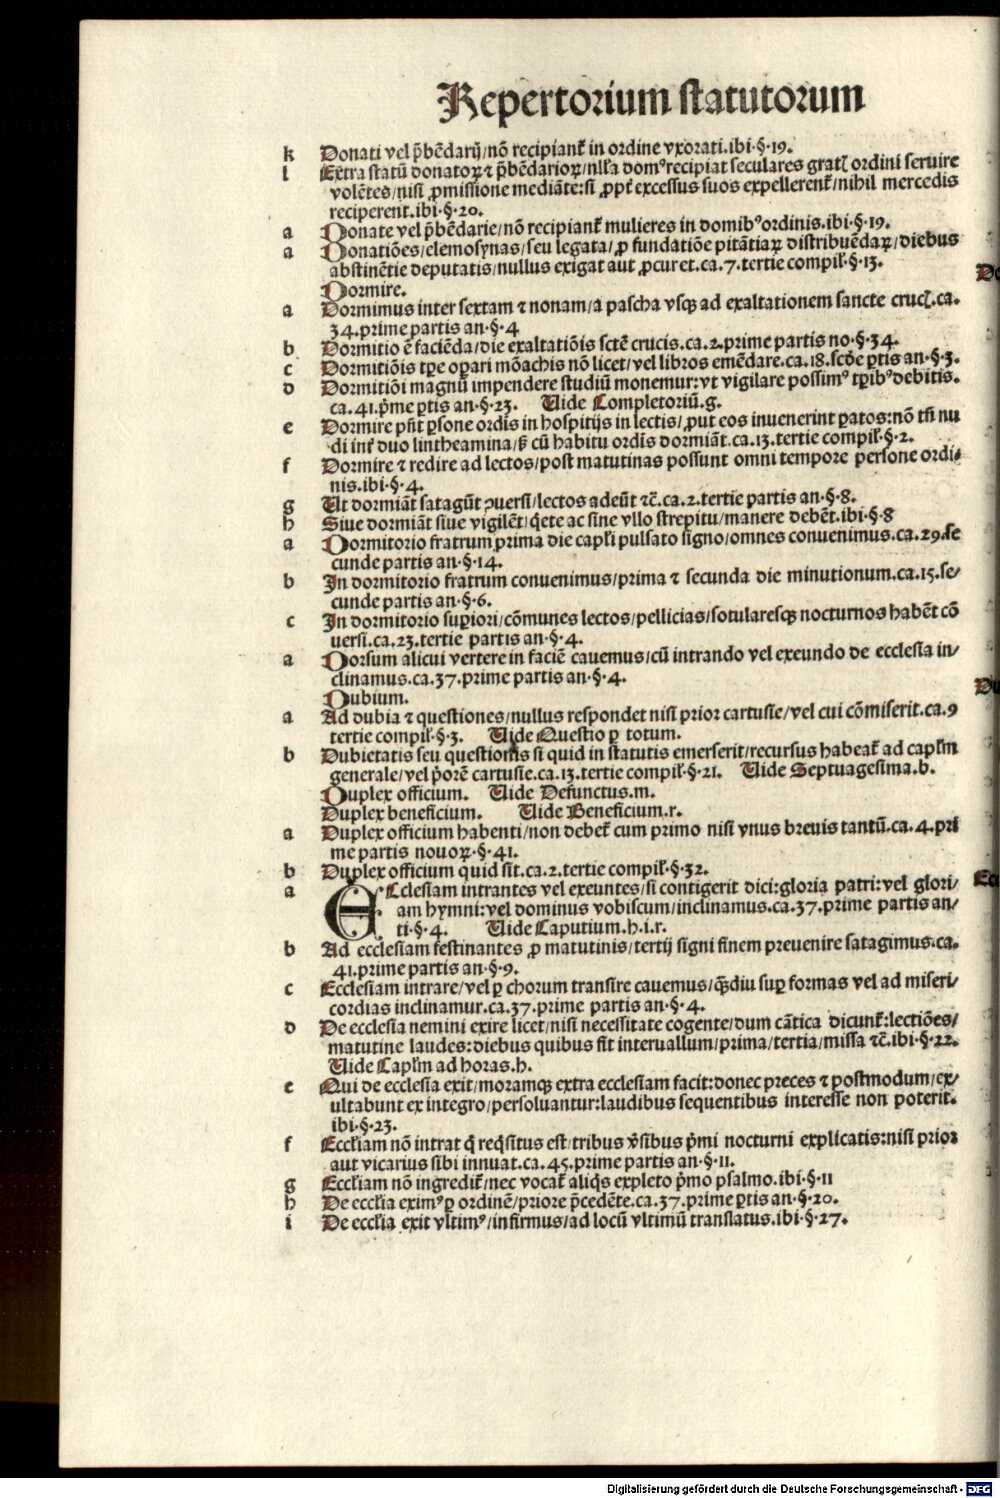 Repertorium statutorum
k Donati vel p̄bēdarij/nō recipiant᷑ in ordine vxorati.ibi.§.19.
l Extra statū donatoꝝ ⁊ p̄bēdarioꝝ/nlla domꝰ recipiat seculares gratꝭ ordini seruire
volētes/nisi ꝓmissione mediāte:si ꝓpt̄ excessus suos expellerent᷑/nihil mercedis
reciperent.ibi.§.20.
a Donate vel p̄bēdarie/nō recipiant᷑ mulieres in domibꝰ ordinis.ibi.§.19.
a Donatiōes/elemosynas/seu legata/ꝓ fundatiōe pitātiaꝝ distribuēdaꝝ/diebus
abstinētie deputatis/nullus exigat aut ꝓcuret.ca.7.tertie compil̄.§.13.
Dormire.
a Dormimus inter sextam ⁊ nonam/a pascha vsqꝫ ad exaltationem sancte crucꝭ.ca.
34.prime partis an.§.4
b Dormitio ē faciēda/die exaltatiōis sctē crucis.ca.2.prime partis no.§.34.
c Dormitiōis tꝑe oꝑari mōachis nō licet/vel libros emēdare.ca.18.scd̄e ꝑtis an.§.3.
d Dormitiōi magnū impendere studiū monemur:vt vigilare possimꝰ tꝑibꝰ debitis.
ca.41.p̄me ꝑtis an.§.23. Uide Completoriū.g.
e Dormire pn̄t ꝑsone ordīs in hospitijs in lectis/ꝓut eos inuenerint ꝑatos:nō tn̄ nu
di int᷑ duo lintheamina/ꝫ cū habitu ordīs dormiāt.ca.13.tertie compil̄.§.2.
f Dormire ⁊ redire ad lectos/post matutinas possunt omni tempore persone ordi/
nis.ibi.§.4.
g Ut dormiāt satagūt ꝯuersi/lectos adeūt ⁊c̄.ca.2.tertie partis an.§.8.
h Siue dormiāt siue vigilēt/q̇ete ac sine vllo strepitu/manere debēt.ibi.§.8
a Dormitorio fratrum prima die capl̄i pulsato signo/omnes conuenimus.ca.29.se
cunde partis an.§.14.
b In dormitorio fratrum conuenimus/prima ⁊ secunda die minutionum.ca.15.se/
cunde partis an.§.6.
c In dormitorio suꝑiori/cōmunes lectos/pellicias/sotularesqꝫ nocturnos habēt cō
uersi.ca.23.tertie partis an.§.4.
a Dorsum alicui vertere in faciē cauemus/cū intrando vel exeundo de ecclesia in/
clinamus.ca.37.prime partis an.§.4.
Dubium.
a Ad dubia ⁊ questiones/nullus respondet nisi prior cartusie/vel cui cōmiserit.ca.9
tertie compil̄.§.3. Uide Questio ꝑ totum.
b Dubietatis seu questionis si quid in statutis emerserit/recursus habeat᷑ ad capl̄m
generale/vel p̄orē cartusie.ca.13.tertie compil̄.§.21. Uide Septuagesima.b.
Duplex officium. Uide Defunctus.m.
Duplex beneficium. Uide Beneficium.r.
a Duplex officium habenti/non debet᷑ cum primo nisi vnus breuis tantū.ca.4.pri
me partis nouoꝝ.§.41.
b Duplex officium quid sit.ca.2.tertie compil̄.§.32.
a ECclesiam intrantes vel exeuntes/si contigerit dici:gloria patri:vel glori/
am hymni:vel dominus vobiscum/inclinamus.ca.37.prime partis an/
ti.§.4. Uide Caputium.h.i.r.
b Ad ecclesiam festinantes ꝓ matutinis/tertij signi finem preuenire satagimus.ca.
41.prime partis an.§.9.
c Ecclesiam intrare/vel ꝑ chorum transire cauemus/qꝫdiu suꝑ formas vel ad miseri/
cordias inclinamur.ca.37.prime partis an.§.4.
d De ecclesia nemini exire licet/nisi necessitate cogente/dum cātica dicunt᷑:lectiōes/
matutine laudes:diebus quibus fit interuallum/prima/tertia/missa ⁊c̄.ibi.§.22.
Uide Capl̄m ad horas.h.
e Qui de ecclesia exit/moramqꝫ extra ecclesiam facit:donec preces ⁊ postmodum/ex/
ultabunt ex integro/persoluantur:laudibus sequentibus interesse non poterit.
ibi.§.23.
f Eccl̄iam nō intrat q̇ req̇situs est/tribus v̄sibus p̄mi nocturni explicatis:nisi prior
aut vicarius sibi innuat.ca.45.prime partis an.§.11.
g Eccl̄iam nō ingredit᷑/nec vocat᷑ aliq̇s expleto p̄mo psalmo.ibi.§.11
h De eccl̄ia eximꝰ ꝑ ordinē/priore p̄cedēte.ca.37.prime ꝑtis an.§.20.
i De eccl̄ia exit vltimꝰ/infirmus/ad locū vltimū translatus.ibi.§.27.
Digitalisierung gefördert durch die Deutsche Forschungsgemeinschaft - DFG